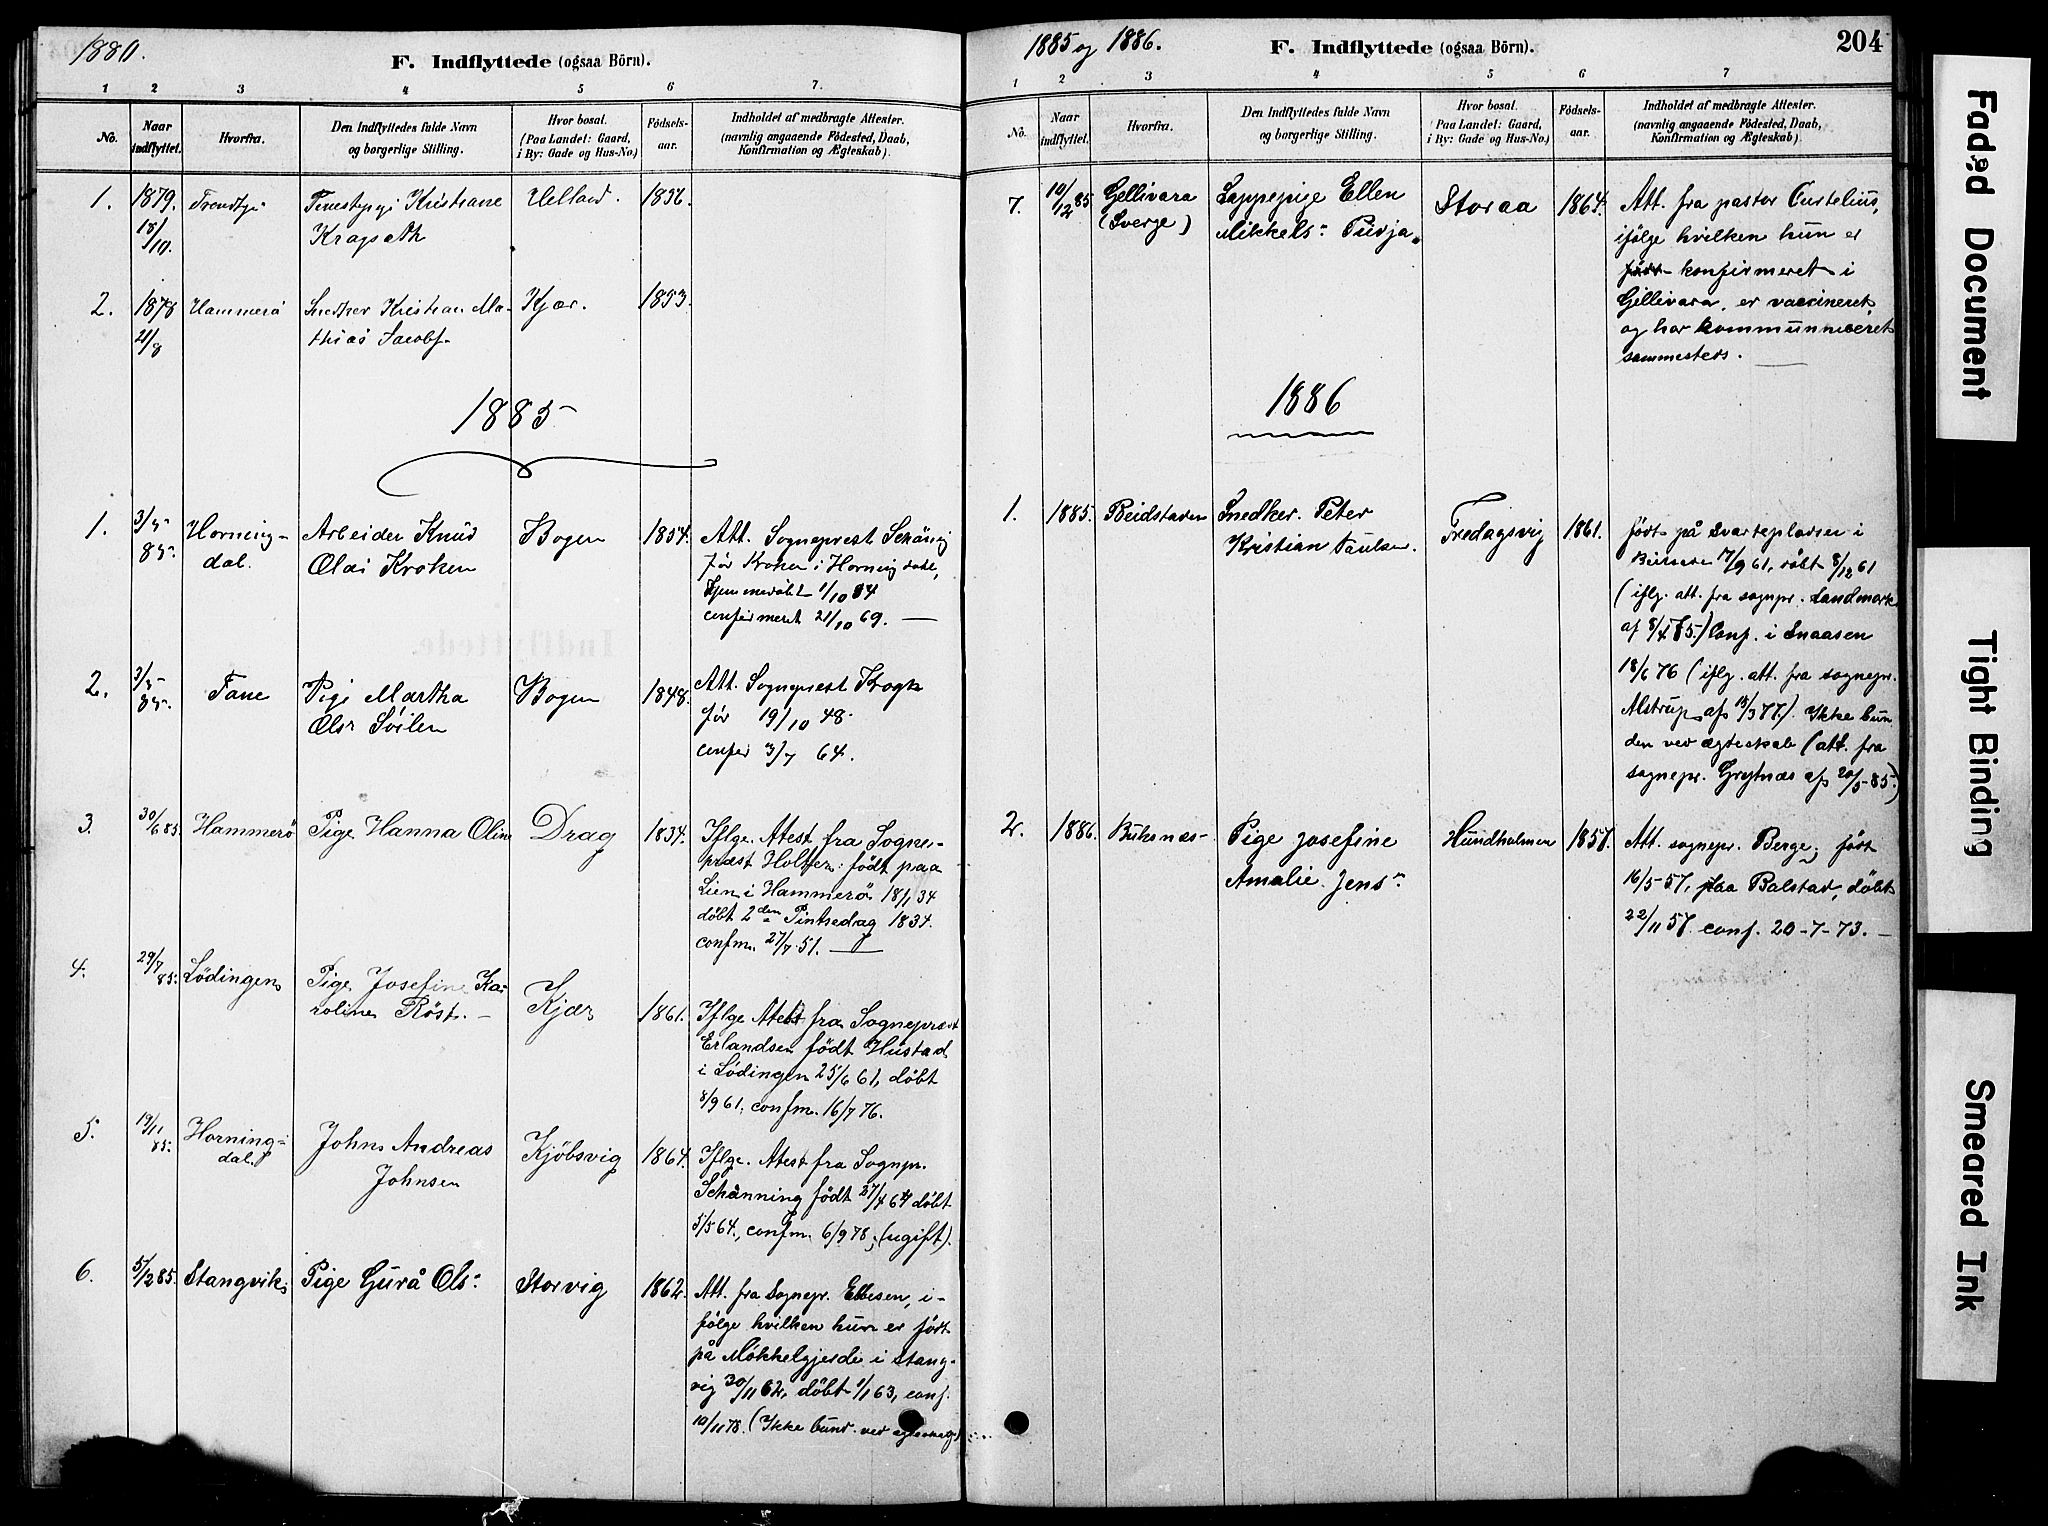 1880.
F. Indflyttede (ogsaa Börn).
1 2 3 4 5 6 7.
No.
Naar indflyttet.
Hvorfra.
Den Indflyttedes fulde Navn
og borgerlige Stilling.
Hvor bosat.
(Paa Landet: Gaard,
i By: Gade og Hus-No.)
Födsels-
aar.
Indholdet af medbragte Attester.
(navnlig angaaende Födested, Daab,
Konfirmation og Ægteskab).
1. 1879. 18/10. Kristiane Helland. 1856.
2. 1878 21/8 Hammerö Snedker Kristian Ma-
thias Jacobs. Kjær. 1853.
1885
1. 3/5 85. Horning-
dal.
Arbeider Knud
Olai Kroken
Bogen 1854.
Att. Sogneprest Schäning
før Kroken i Horningdal,
hjemmedøbt 1/10 54
confirmeret 21/10 69. —
2. 3/5 85. Fane Pige Martha
Olsr Søilen
Bogen 1848.
Att. Sogneprest Krogh
før 19/10 48
confir 3/7 64.
3. 30/6 85. Hammerö Pige Hanna Oline Drag 1834.
Iflge. Atest fra Sogne-
præst Holter: födt paa
Lien i Hammerö 18/1 34
döbt 2den Pintsedag 1834.
confm. 27/7 51. —
4. 29/7 85. Lödingen Pige Josefine Ka-
roline Röst. —
Kjær 1861.
Iflge Atest fra Sognepræst
Erlandsen födt Hustad
i Lödingen 25/6 61, döbt
8/9 61, confm. 16/7 76.
5. 19/11 85. Horning-
dal.
John Andreas
Johnsen
Kjöbsvig 1864.
Iflge. Atest fra Sognpr.
Schänning födt 27/4 64 döbt
5/5 64., confm. 6/9 78, (ugift).
6. 5/2 85. Stangvik. Pige Gurå Ols: Storvig 1862.
Att. fra Sognepr. Ebbesen, i-
følge hvilken hun er født
på Mökkelgjerde i Stang-
vig 30/11 62, døbt 1/1 63, conf.
10/11 78. (Ikke bund. ved ægteskab)
1885 og 1886.
F. Indflyttede (ogsaa Börn).
204
1 2 3 4 5 6 7
No.
Naar indflyttet.
Hvorfra.
Den Indflyttedes fulde Navn
og borgerlige Stilling.
Hvor bosat.
(Paa Landet: Gaard,
i By: Gade og Hus-No.)
Födsels-
aar.
Indholdet af medbragte Attester.
(navnlig angaaende Födested, Daab,
Konfirmation og Ægteskab).
7. 10/2 85 Gellivara
(Sverge)
Lappepige Ellen
Mikkels: Purja.
Storaa 1864.
Att. fra pastor Curtelius,
ifølge hvilken hun er
født konfirmeret i
Gellivara, er vaccineret
og har kommunniceret
sammesteds. —
1886
1. 1885. Beidstaden Snedker. Peter
Kristian Paulsen.
Fredagsvig 1861.
født på Svartepladsen i
17/9 61, døbt 8/12 61
(iflg. att. fra sognepr. Landmark
af 8/4 85.) Conf. i Snaasen
18/6 76 (iflg. att. fra sognepr.
Alstrup af 13/3 77.) Ikke bun
den ved ægteskab (att. fra
sognepr. Grytnæs af 20/5-85.)
2. 1886. Buksnæs- Pige Josefine
Amalie. Jens:
Hundholmen 1857.
Att. sognepr. Berge; født
16/5-57, paa Balstad, døbt
22/11 57. conf. 20-7-73. —
Faded Document
Tight Binding
Smeared Ink